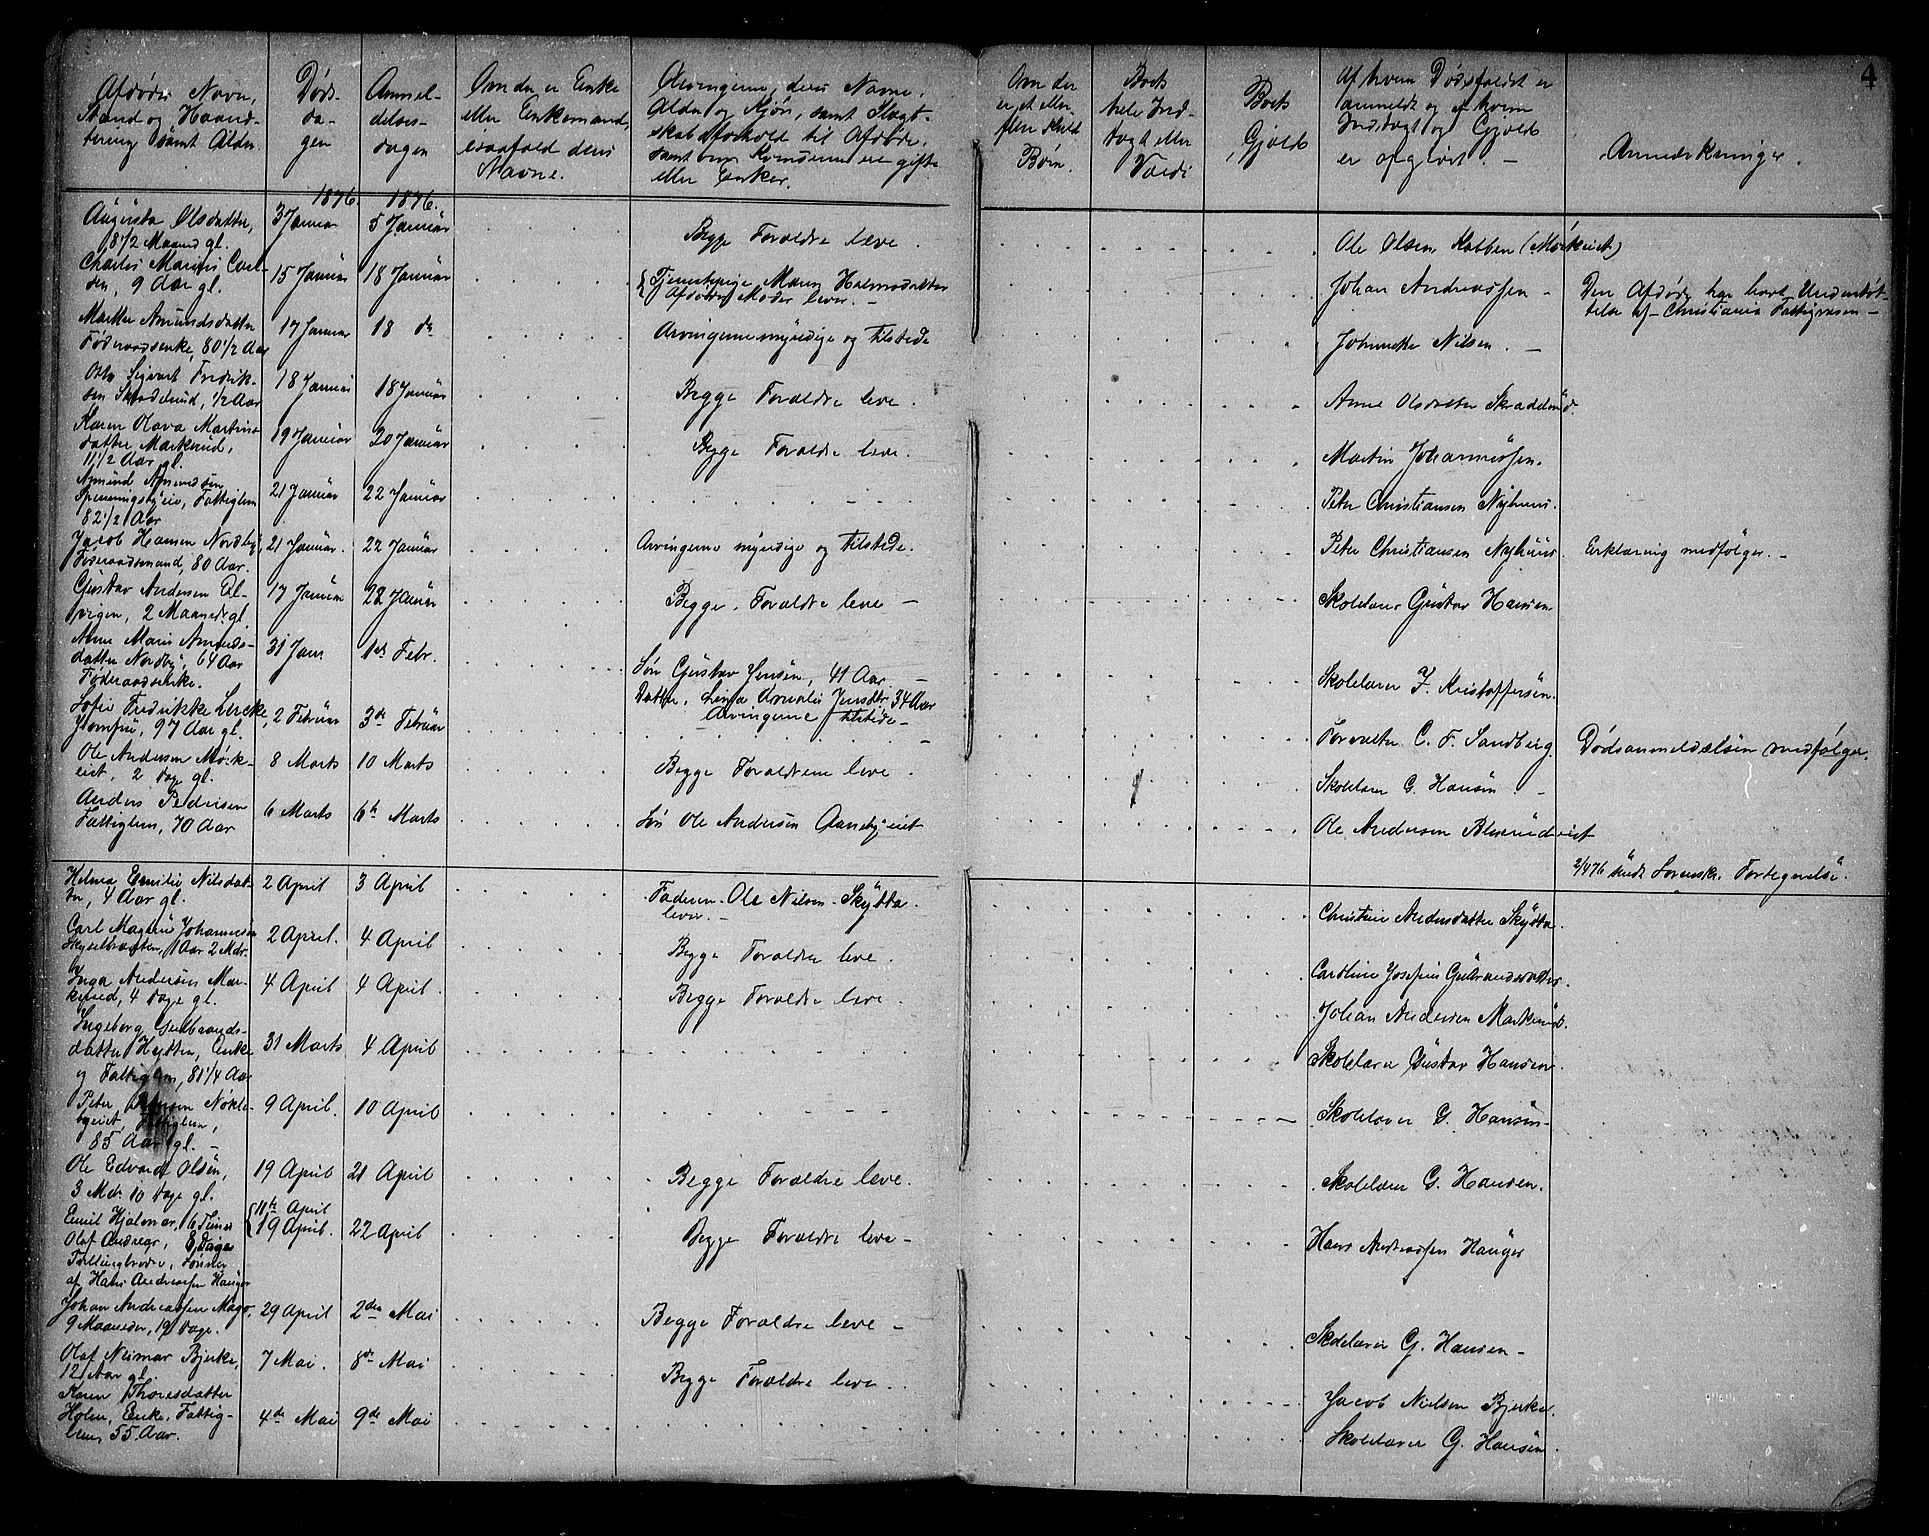 4
Afdødes Navn,
Stand og Haand-
tering samt Alder
Døds-
da-
gen
Anmel-
delses-
dagen
Om der er Enke
eller Enkemand,
isaafald dens
Navne.
Arvingerne, deres Navne,
Alder og Kjøn, samt Slægt-
skabsforhold til Afdøde,
samt om Kvinderne ere gifte
eller Enker.
Om der
er et eller
flere Kuld
Børn.
Boets
hele Ind-
tægt eller
Værdi
Boets
Gjæld
Af hvem Dødsfaldet er
anmeldt og af hvem
Indtægt og Gjæld
er opgivet. –
Anmærkninger.
1876. 1876.
Augusta Olsdatter, 3 Januar 5 Januar
8 1/2 Maaned gl. Begge Forældre leve. Ole Olsen Kabben (Mørkeiet)
Charles Marius Carl-
sen, 9 Aar gl. 15 Januar 18 Januar Tjenestepige Maren Halvorsdatter
Afdødes Moder lever. – Johan Andreassen – Den Afdøde har havt Understøt-
telse af Christiania Fattigvæsen –
Marthe Amundsdatter 17 Januar 18 do
Føderaadsenke, 80 1/2 Aar Arvingerne myndige og tilstede Johannes Nilsen. –
Otto Sigvart Fredrik-
sen Skoddelrud, 1/2 Aar 18 Januar 18 Januar Begge Forældre leve. Anne Olsdatter
Karen Olava Martins-
datter Markerud, 19 Januar 20 Januar Begge Forældre leve. Martin Johannessen.
11 1/2 Aar gl.
Amund Amundsen
Spenningsbyeie, Fattiglem 21 Januar 22 Januar Peter Christiansen Nyhuus.
82 1/2 Aar
Jacob Hansen Nordby, 21 Januar. 22 Januar Arvingerne myndige og tilstede. Peter Christiansen Nyhuus Erklæring medfølger. –
Føderaadsmand, 80 Aar.
Gustav Andersen Dal-
vigen, 2 Maaned gl. 17 Januar 28 Januar Begge Forældre leve – Skolelærer Gustav Hansen
Anne Marie Amunds-
datter Nordby, 64 Aar 31 Janr 1ste Febr. Søn Gustav Jensen, 41 Aar –
Føderaadsenke. Datter, Amalie Jensdtr, 34 Aar
Arvingerne tilstede – Skolelærer J. Kristoffersen.
Sofie Fredrikke Lercke,
Jomfru, 97 Aar gl. 2 Februar 3de Februar Forvalter C. F. Sandberg. Dødsanmeldelsen medfølger.
Ole Andersen Mørk-
eiet, 2 Dage gl. 8 Marts 10 Marts Begge Forældrene leve. Skolelærer G. Hansen. –
Anders Pedersen 6 Marts 6te Marts Søn Ole Andersen Aansbyeiet Ole Andersen
Fattiglem, 70 Aar
2/4 76 sendt Sorensk. Fortegnelse.
Helma Emilie Nilsdat-
ter, 4 Aar gl. 2 April 3 April Faderen Ole Nilsen Skytta
lever. – Christine Andersdatter Skytta.
Carl Magnus Johannesen
Skyselbraaten, 1 Aar 2 Mdr. 2 April. 4 April Begge Forældre leve. Caroline Josefine Gulbrandsdatter.
Inga Andersen Mar-
kerud, 4 Dage gl. 4 April 4 April. Begge Forældre leve. Johan Andersen Markerud.
Ingeborg Gulbrands-
datter Hytten, Enke 31 Marts 4 April Skolelærer Gustav Hansen.
og Fattiglem, 81 1/4 Aar
Peter Nøkle-
byeiet, Fattiglem, 9 April. 10 April Skolelærer G. Hansen –
85 Aar gl. –
Ole Edvard Olsen, 19 April 21 April Begge Forældre leve. Skolelærer G. Hansen.
3 Mdr. 10 Dage gl.
Emil Hjalmar, 6 Timer 11te April
Olaf Andreas, 8 Dage 19 April. 22 April Begge Forældre leve – Hans Andreassen Hauger
Tvillingbrødre, Sønner
af Hans Andreassen Hauger
Johan Andreassen Mago, 29 April 2den Mai Begge Forældre leve – Skolelærer G. Hansen –
9 Maaneder, 19 Dage.
Olaf Neimar Bjerke, 7 Mai. 8de Mai Begge Forældre leve. Jacob Nielsen Bjerke.
12 Aar gl.
Karen Thoresdatter
Holm, Enke, Fattig- 4de Mai 9de Mai Skolelærer G. Hansen.
lem, 55 Aar.